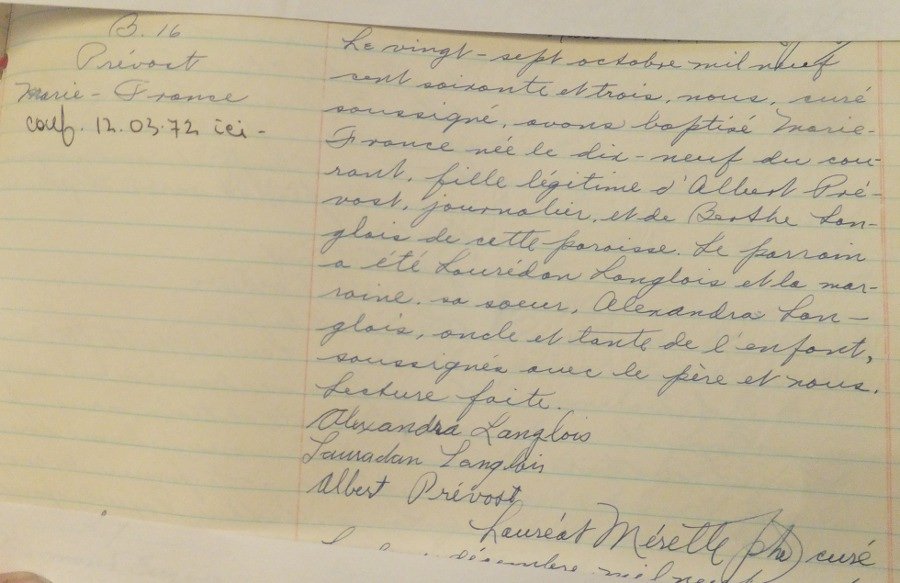 B. 16
Prévost
Marie-France
conf. 12.03.72 ici-
Le vingt-sept octobre mil neuf
cent soixante et trois, nous, curé
soussigné, avons baptisé Marie-
France née le dix-neuf du cou-
rant, fille légitime d'Albert Pré-
vost, journalier, et de Berthe Lan-
glois de cette paroisse. Le parrain
a été Laurédan Langlois et la mar-
raine, sa soeur, Alexandra Lan-
glois, oncle et tante de l'enfant,
soussignés avec le père et nous.
Lecture faite.
Alexandra Langlois
Lauradan Langlois
Albert Prévost
Lauréat Mérette ptre curé
décembre mil neuf